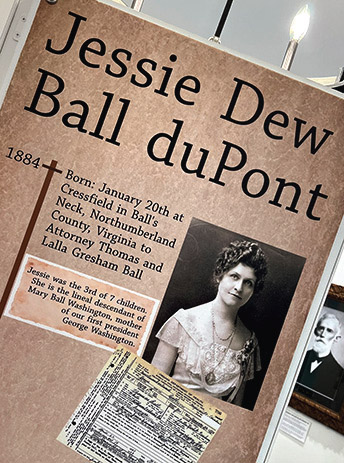 Jessie Dew
Ball duPont
1884
Born: January 20th at
Cressfield in Ball's
Neck, Northumberland
County, Virginia to
Attorney Thomas and
Lalla Gresham Ball
Jessie was the 3rd of 7 children.
She is the lineal descendant of
Mary Ball Washington, mother
of our first president
George Washington.